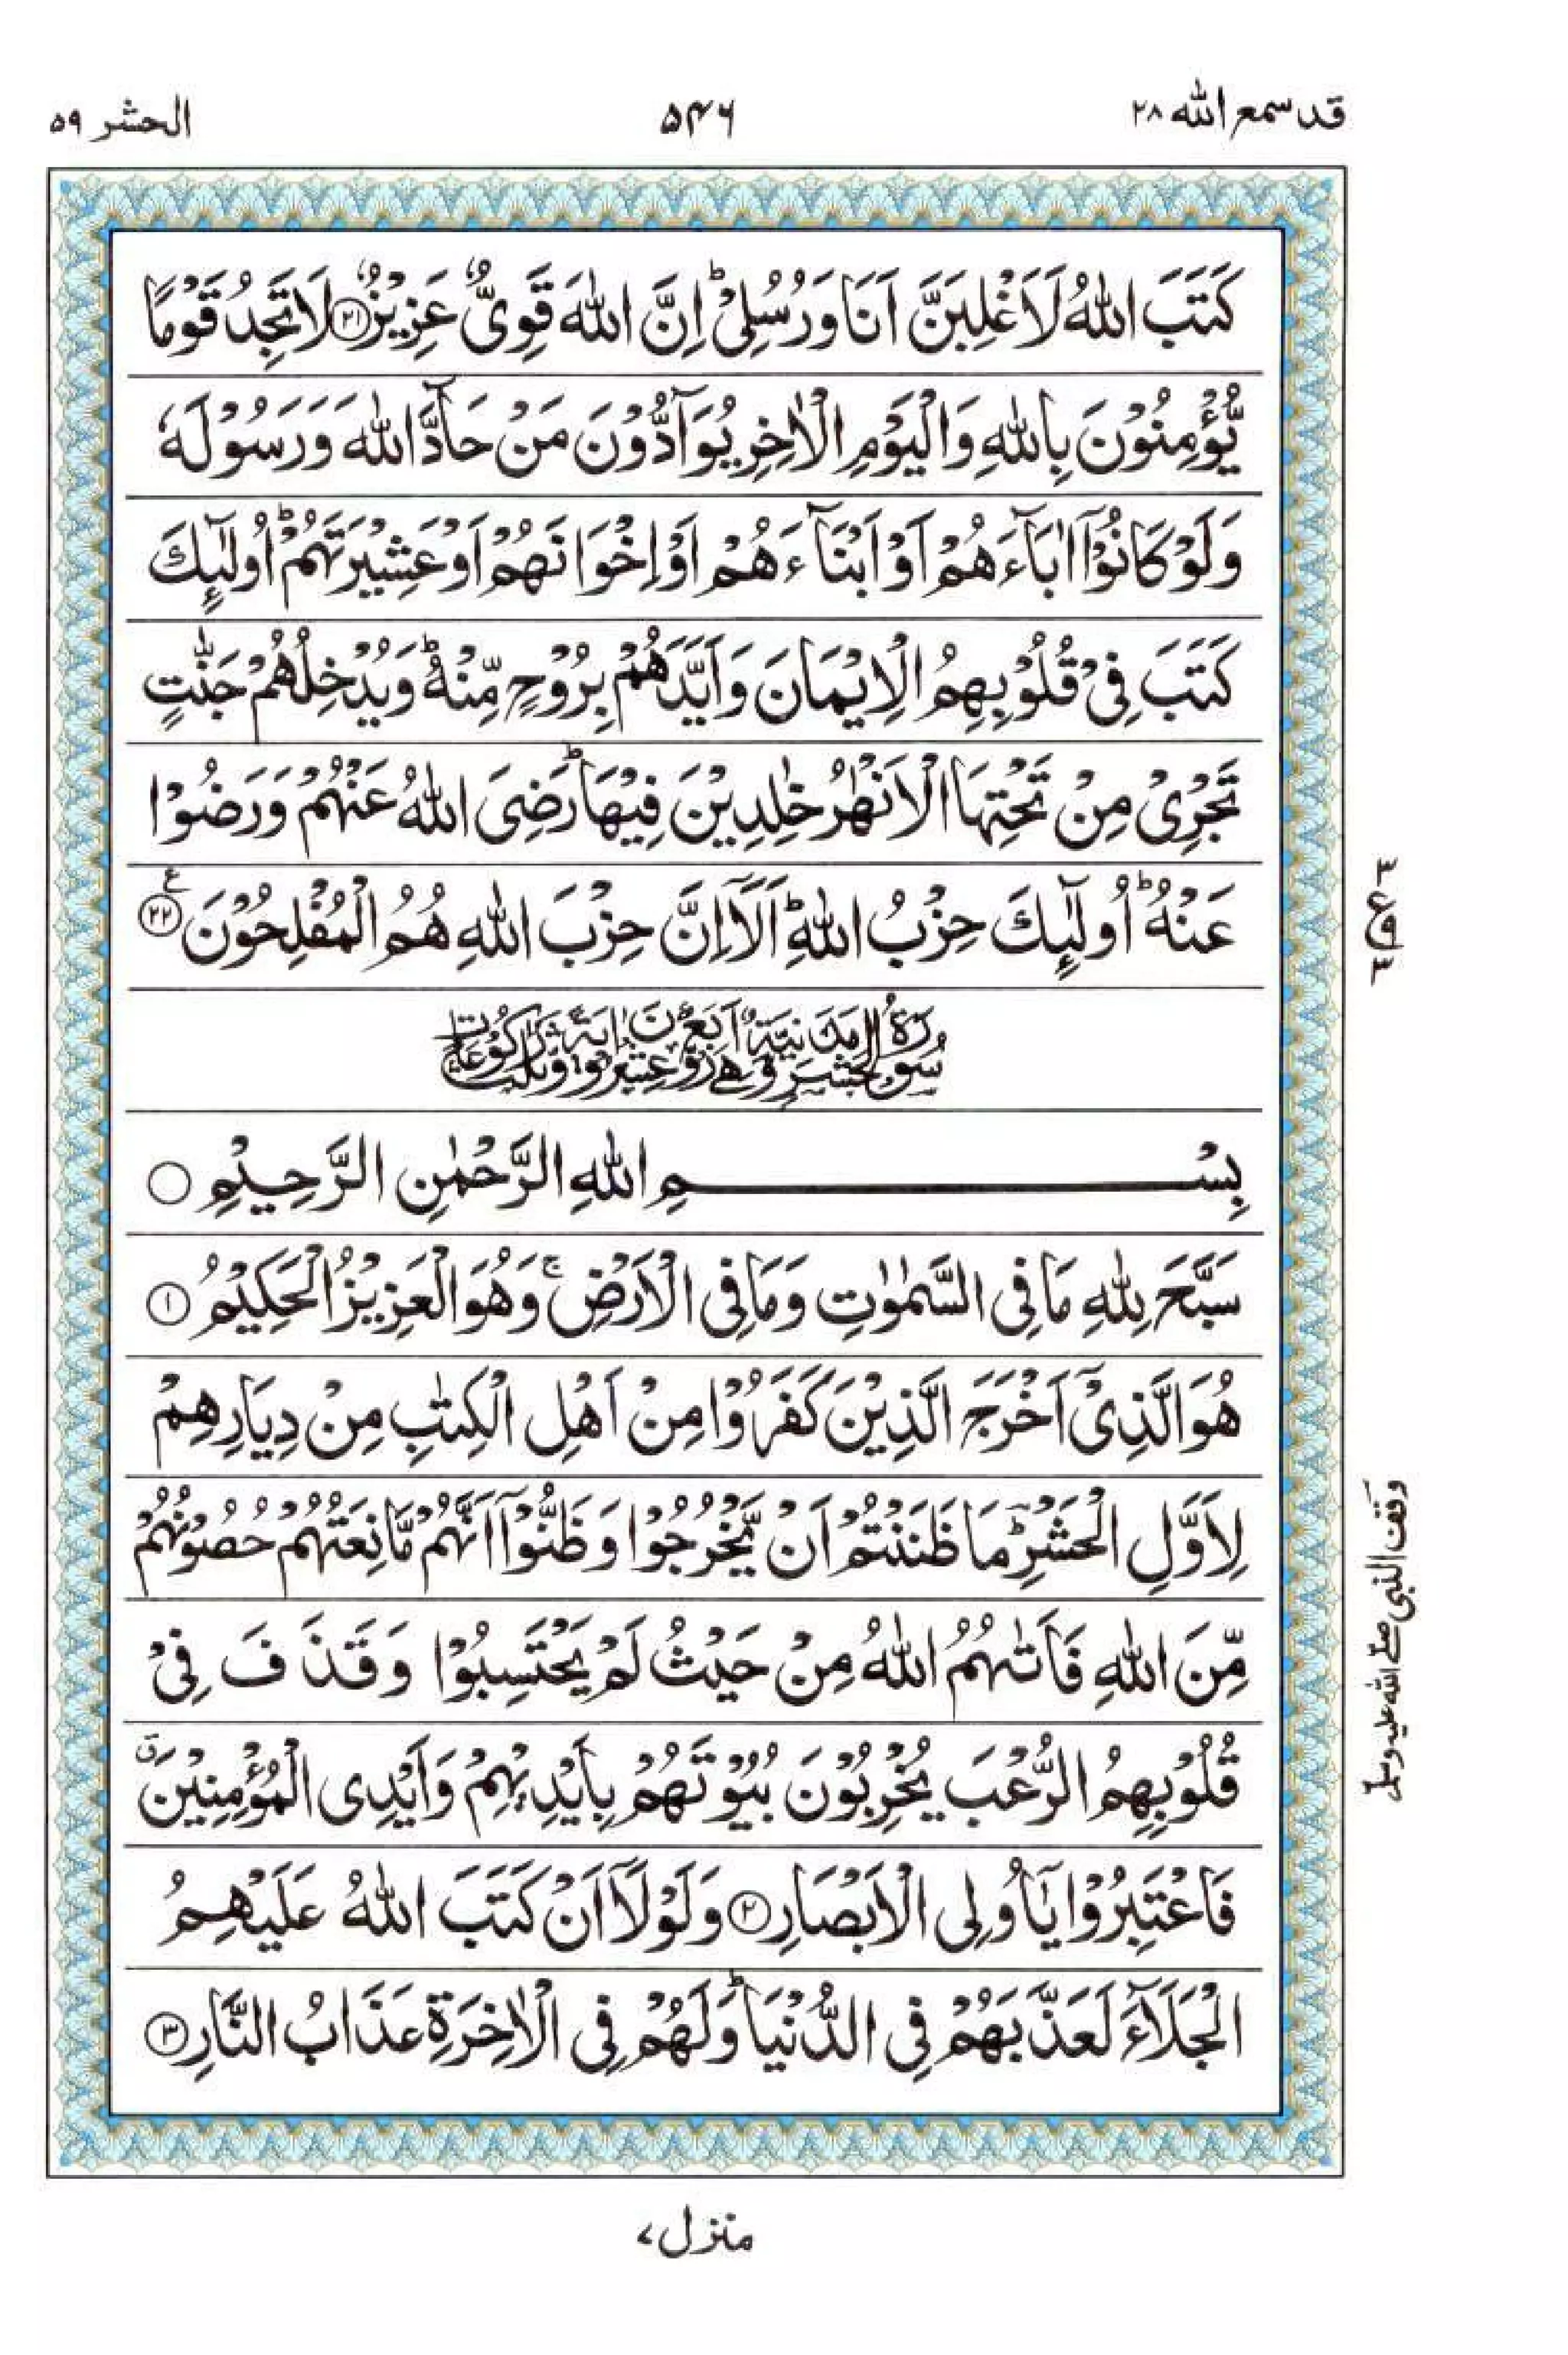 قد سمع الله ٢٨
۵۴۶
الحشر ۵۹
كَتَبَ اللّٰهُ لَاَغْلِبَنَّ اَنَا وَرُسُلِیْ ؕ اِنَّ اللّٰهَ قَوِیٌّ عَزِیْزٌ ﴿۲۱﴾ لَا تَجِدُ قَوْمًا
یُّؤْمِنُوْنَ بِاللّٰهِ وَالْیَوْمِ الْاٰخِرِ یُوَآدُّوْنَ مَنْ حَآدَّ اللّٰهَ وَرَسُوْلَهٗ
وَلَوْ كَانُوْۤا اٰبَآءَهُمْ اَوْ اَبْنَآءَهُمْ اَوْ اِخْوَانَهُمْ اَوْ عَشِیْرَتَهُمْ ؕ اُولٰٓىِٕكَ
كَتَبَ فِیْ قُلُوْبِهِمُ الْاِیْمَانَ وَاَیَّدَهُمْ بِرُوْحٍ مِّنْهُ ؕ وَیُدْخِلُهُمْ جَنّٰتٍ
تَجْرِیْ مِنْ تَحْتِهَا الْاَنْهٰرُ خٰلِدِیْنَ فِیْهَا ؕ رَضِیَ اللّٰهُ عَنْهُمْ وَرَضُوْا
عَنْهُ ؕ اُولٰٓىِٕكَ حِزْبُ اللّٰهِ ؕ اَلَاۤ اِنَّ حِزْبَ اللّٰهِ هُمُ الْمُفْلِحُوْنَ ﴿۲۲﴾ ع
٣ ع ٣
سُوْرَةُ الْحَشْرِ مَدَنِیَّةٌ وَّهِیَ اَرْبَعٌ وَّعِشْرُوْنَ اٰیَةً وَّثَلٰثُ رُكُوْعَاتٍ
بِسْمِ اللّٰهِ الرَّحْمٰنِ الرَّحِیْمِ
سَبَّحَ لِلّٰهِ مَا فِی السَّمٰوٰتِ وَمَا فِی الْاَرْضِ ۚ وَهُوَ الْعَزِیْزُ الْحَكِیْمُ ﴿۱﴾
هُوَ الَّذِیْۤ اَخْرَجَ الَّذِیْنَ كَفَرُوْا مِنْ اَهْلِ الْكِتٰبِ مِنْ دِیَارِهِمْ
لِاَوَّلِ الْحَشْرِ ؔؕ مَا ظَنَنْتُمْ اَنْ یَّخْرُجُوْا وَظَنُّوْۤا اَنَّهُمْ مَّانِعَتُهُمْ حُصُوْنُهُمْ
مِّنَ اللّٰهِ فَاَتٰىهُمُ اللّٰهُ مِنْ حَیْثُ لَمْ یَحْتَسِبُوْا وَقَذَفَ فِیْ
وقف النبی صلے الله علیه وسلم
قُلُوْبِهِمُ الرُّعْبَ یُخْرِبُوْنَ بُیُوْتَهُمْ بِاَیْدِیْهِمْ وَاَیْدِی الْمُؤْمِنِیْنَ ۗ
فَاعْتَبِرُوْا یٰۤاُولِی الْاَبْصَارِ ﴿۲﴾ وَلَوْلَاۤ اَنْ كَتَبَ اللّٰهُ عَلَیْهِمُ
الْجَلَآءَ لَعَذَّبَهُمْ فِی الدُّنْیَا ؕ وَلَهُمْ فِی الْاٰخِرَةِ عَذَابُ النَّارِ ﴿۳﴾
منزل ۷